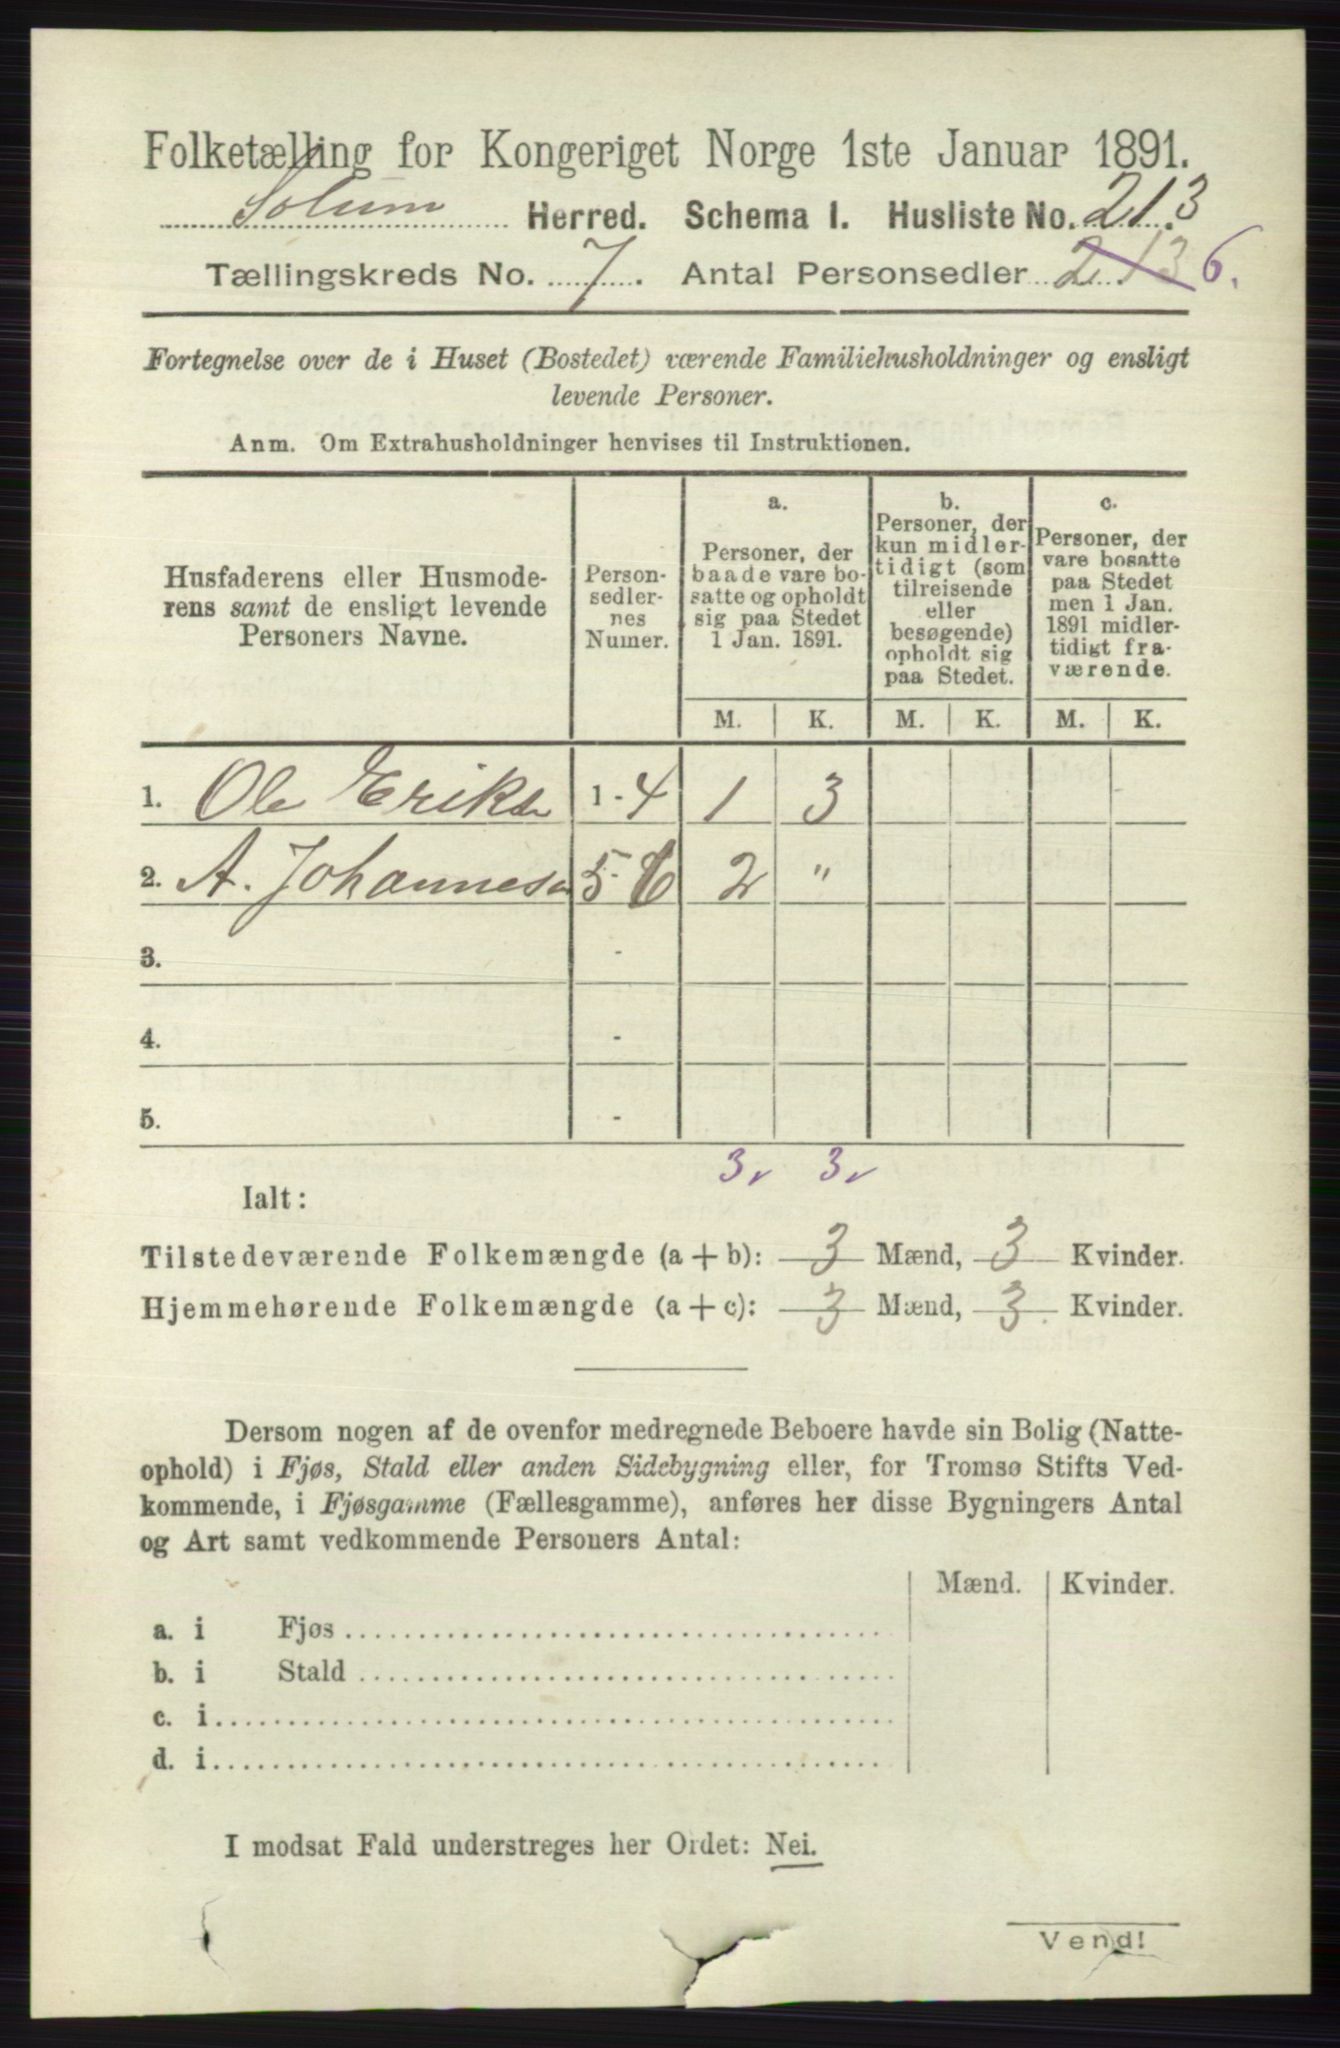 Folketælling for Kongeriget Norge 1ste Januar 1891.
Solum Herred. Schema I. Husliste No. 213
Tællingskreds No. 7. Antal Personsedler 213 6.
Fortegnelse over de i Huset (Bostedet) værende Familiehusholdninger og ensligt
levende Personer.
Anm. Om Extrahusholdninger henvises til Instruktionen.
Husfaderens eller Husmode-
rens samt de ensligt levende
Personers Navne.
Person-
sedler-
nes
Numer.
a.
Personer, der
baade vare bo-
satte og opholdt
sig paa Stedet
1 Jan. 1891.
b.
Personer, der
kun midler-
tidigt (som
tilreisende
eller
besøgende)
opholdt sig
paa Stedet.
c.
Personer, der
vare bosatte
paa Stedet
men i Jan.
1891 midler-
tidigt fra-
værende.
M. K. M. K. M. K.
1. Ole Eriks 1-4 1 3
2. A. Johannesen 5-6 2 "
3. -
4. -
5. -
3 3
Ialt:
Tilstedeværende Folkemængde (a + b): 3 Mænd, 3 Kvinder.
Hjemmehørende Folkemængde (a + c): 3 Mænd, 3 Kvinder.
Dersom nogen af de ovenfor medregnede Beboere havde sin Bolig (Natte-
ophold) i Fjøs, Stald eller anden Sidebygning eller, for Tromsø Stifts Ved-
kommende, i Fjøsgamme (Fællesgamme), anføres her disse Bygningers Antal
og Art samt vedkommende Personers Antal:
Mænd. Kvinder.
a. i Fjøs
b. i Stald
c. i
d. i
I modsat Fald understreges her Ordet: Nei.
Vend!